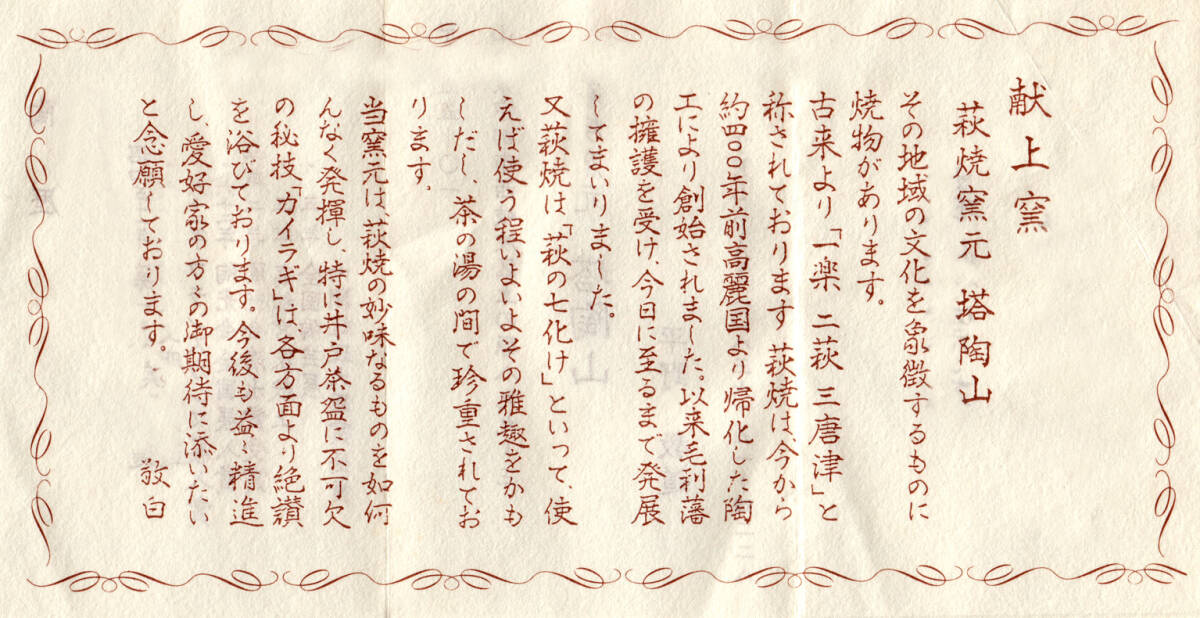 献上窯
萩焼窯元 塔陶山
その地域の文化を象徴するものに
焼物があります。
古来より「一楽 二萩 三唐津」と
称されております 萩焼は、今から
約四〇〇年前高麗国より帰化した陶
工により創始されました。以来毛利藩
の擁護を受け、今日に至るまで発展
してまいりました。
又萩焼は「萩の七化け」といって、使
えば使う程いよいよその雅趣をかも
しだし、茶の湯の間で珍重されてお
ります。
当窯元は、萩焼の妙味なるものを如何
んなく発揮し、特に井戸茶盌に不可欠
の秘技「カイラギ」は各方面より絶讃
を浴びております。今後も益々精進
し、愛好家の方々の御期待に添いたい
と念願しております。
敬白